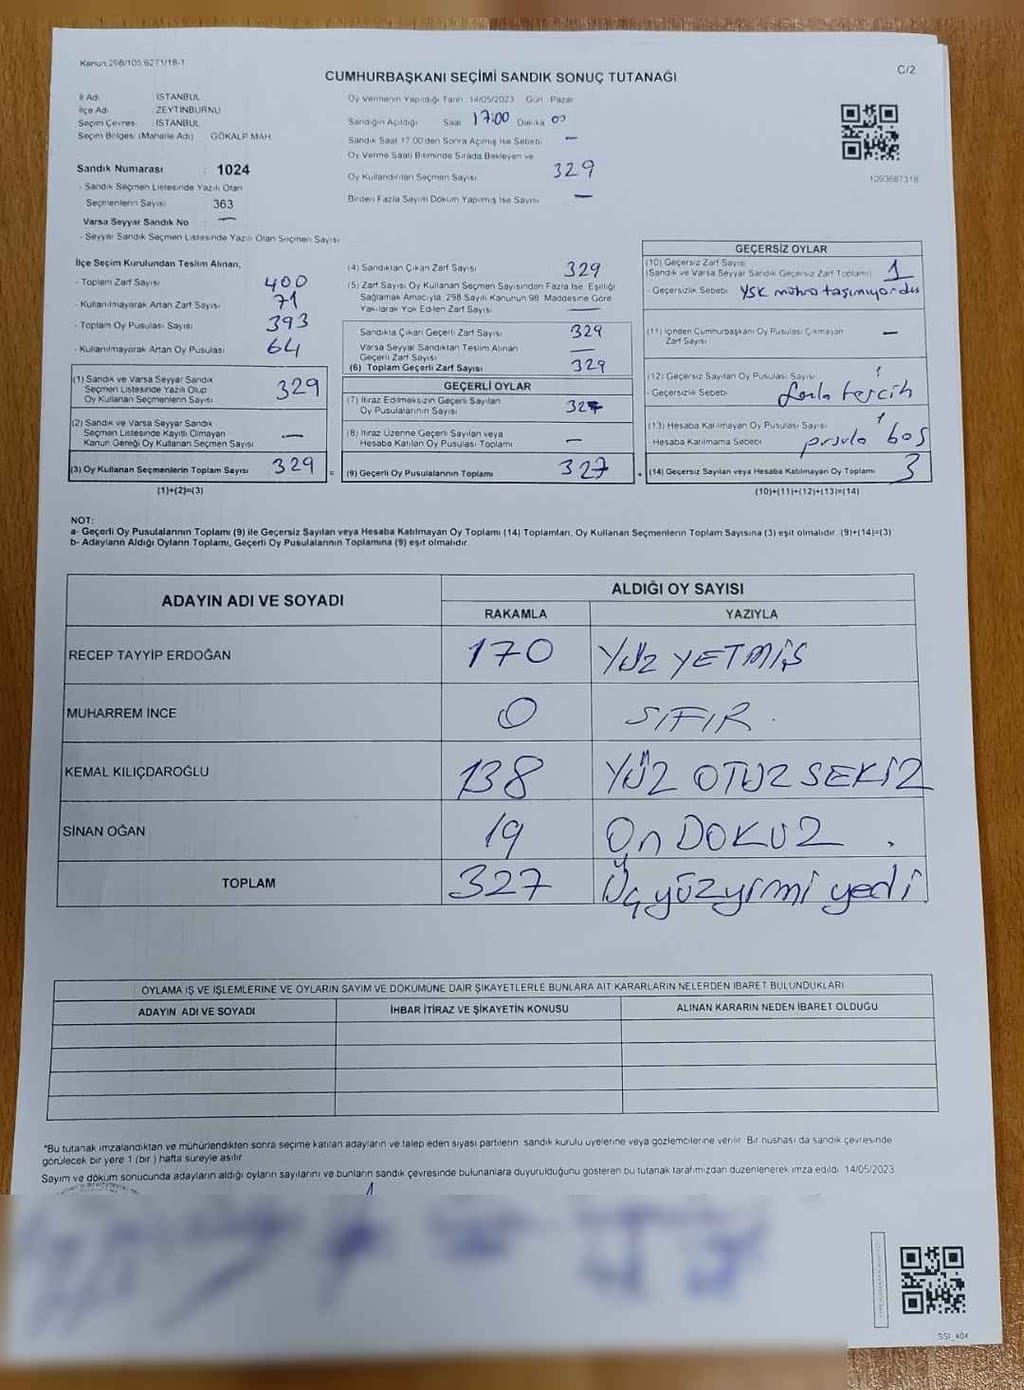 Kanun 298/105,6271/18-1
C/2
CUMHURBAŞKANI SEÇİMİ SANDIK SONUÇ TUTANAĞI
İl Adı : İSTANBUL
İlçe Adı : ZEYTİNBURNU
Seçim Çevresi : İSTANBUL
Seçim Bölgesi (Mahalle Adı) GÖKALP MAH
Sandık Numarası : 1024
- Sandık Seçmen Listesinde Yazılı Olan
Seçmenlerin Sayısı 363
Varsa Seyyar Sandık No : —
- Seyyar Sandık Seçmen Listesinde Yazılı Olan Seçmen Sayısı
Oy Vermenin Yapıldığı Tarih 14/05/2023 Gün Pazar
Sandığın Açıldığı Saat 17:00 Dakika 00
Sandık Saat 17:00'den Sonra Açılmış İse Sebebi —
Oy Verme Saati Bitiminde Sırada Bekleyen ve
Oy Kullandırılan Seçmen Sayısı 329
Birden Fazla Sayım Döküm Yapılmış İse Sayısı —
1093687318
İlçe Seçim Kurulundan Teslim Alınan;
- Toplam Zarf Sayısı 400
- Kullanılmayarak Artan Zarf Sayısı 71
- Toplam Oy Pusulası Sayısı 393
- Kullanılmayarak Artan Oy Pusulası 64
(1) Sandık ve Varsa Seyyar Sandık
Seçmen Listesinde Yazılı Olup
Oy Kullanan Seçmenlerin Sayısı 329
(2) Sandık ve Varsa Seyyar Sandık
Seçmen Listesinde Kayıtlı Olmayan
Kanun Gereği Oy Kullanan Seçmen Sayısı —
(3) Oy Kullanan Seçmenlerin Toplam Sayısı 329 =
(1)+(2)=(3)
(4) Sandıktan Çıkan Zarf Sayısı 329
(5) Zarf Sayısı Oy Kullanan Seçmen Sayısından Fazla İse, Eşitliği
Sağlamak Amacıyla, 298 Sayılı Kanunun 98. Maddesine Göre
Yakılarak Yok Edilen Zarf Sayısı —
Sandıkta Çıkan Geçerli Zarf Sayısı 329
Varsa Seyyar Sandıktan Teslim Alınan
Geçerli Zarf Sayısı —
(6) Toplam Geçerli Zarf Sayısı 329
GEÇERLİ OYLAR
(7) İtiraz Edilmeksizin Geçerli Sayılan
Oy Pusulalarının Sayısı 327
(8) İtiraz Üzerine Geçerli Sayılan veya
Hesaba Katılan Oy Pusulası Toplamı —
(9) Geçerli Oy Pusulalarının Toplamı 327 +
GEÇERSİZ OYLAR
(10) Geçersiz Zarf Sayısı
(Sandık ve Varsa Seyyar Sandık Geçersiz Zarf Toplamı) 1
- Geçersizlik Sebebi YSK mührü taşımıyordu
(11) İçinden Cumhurbaşkanı Oy Pusulası Çıkmayan
Zarf Sayısı —
(12) Geçersiz Sayılan Oy Pusulası Sayısı 1
- Geçersizlik Sebebi fazla tercih
(13) Hesaba Katılmayan Oy Pusulası Sayısı 1
- Hesaba Katılmama Sebebi pusula boş
(14) Geçersiz Sayılan veya Hesaba Katılmayan Oy Toplamı 3
(10)+(11)+(12)+(13)=(14)
NOT:
a- Geçerli Oy Pusulalarının Toplamı (9) ile Geçersiz Sayılan veya Hesaba Katılmayan Oy Toplamı (14) Toplamları, Oy Kullanan Seçmenlerin Toplam Sayısına (3) eşit olmalıdır. (9)+(14)=(3)
b- Adayların Aldığı Oyların Toplamı, Geçerli Oy Pusulalarının Toplamına (9) eşit olmalıdır.
ADAYIN ADI VE SOYADI
ALDIĞI OY SAYISI
RAKAMLA YAZIYLA
RECEP TAYYİP ERDOĞAN 170 YÜZ YETMİŞ
MUHARREM İNCE 0 SIFIR.
KEMAL KILIÇDAROĞLU 138 YÜZ OTUZ SEKİZ
SİNAN OĞAN 19 On DOKUZ.
TOPLAM 327 Üç yüz yirmi yedi
OYLAMA İŞ VE İŞLEMLERİNE VE OYLARIN SAYIM VE DÖKÜMÜNE DAİR ŞİKAYETLERLE BUNLARA AİT KARARLARIN NELERDEN İBARET BULUNDUKLARI
ADAYIN ADI VE SOYADI İHBAR İTİRAZ VE ŞİKAYETİN KONUSU ALINAN KARARIN NEDEN İBARET OLDUĞU
*Bu tutanak imzalandıktan ve mühürlendikten sonra seçime katılan adayların ve talep eden siyasi partilerin sandık kurulu üyelerine veya gözlemcilerine verilir. Bir nüshası da sandık çevresinde
görülecek bir yere 1 (bir) hafta süreyle asılır
Sayım ve döküm sonucunda adayların aldığı oyların sayılarını ve bunların sandık çevresinde bulunanlara duyurulduğunu gösteren bu tutanak tarafımızdan düzenlenerek imza edildi. 14/05/2023
SSI_404